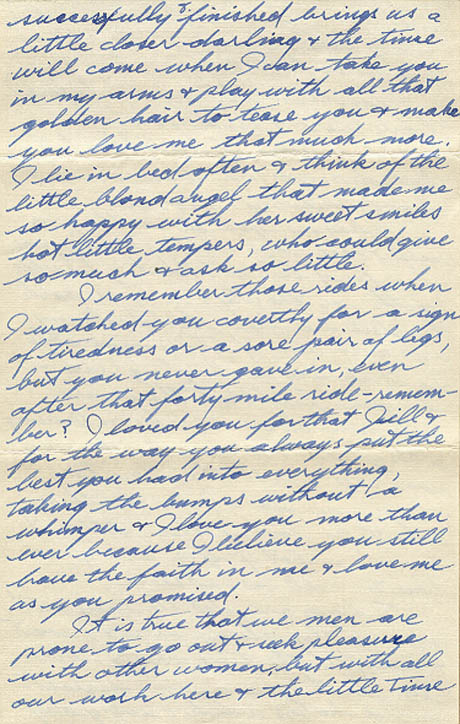 successfully finished brings us a
little closer darling & the time
will come when I can take you
in my arms & play with all that
golden hair to tease you & make
you love me that much more.
I lie in bed often & think of the
little blond angel that made me
so happy with her sweet smiles
hot little tempers, who could give
so much & ask so little.
I remember those rides when
I watched you covertly for a sign
of tiredness or a sore pair of legs,
but you never gave in, even
after that forty mile ride-remem-
ber? I loved you for that Jill &
for the way you always put the
best you had into everything,
taking the bumps without a
whimper & I love you more than
ever because I believe you still
have the faith in me & love me
as you promised.
It is true that we men are
prone to go out & seek pleasure
with other women, but with all
our work here & the little time